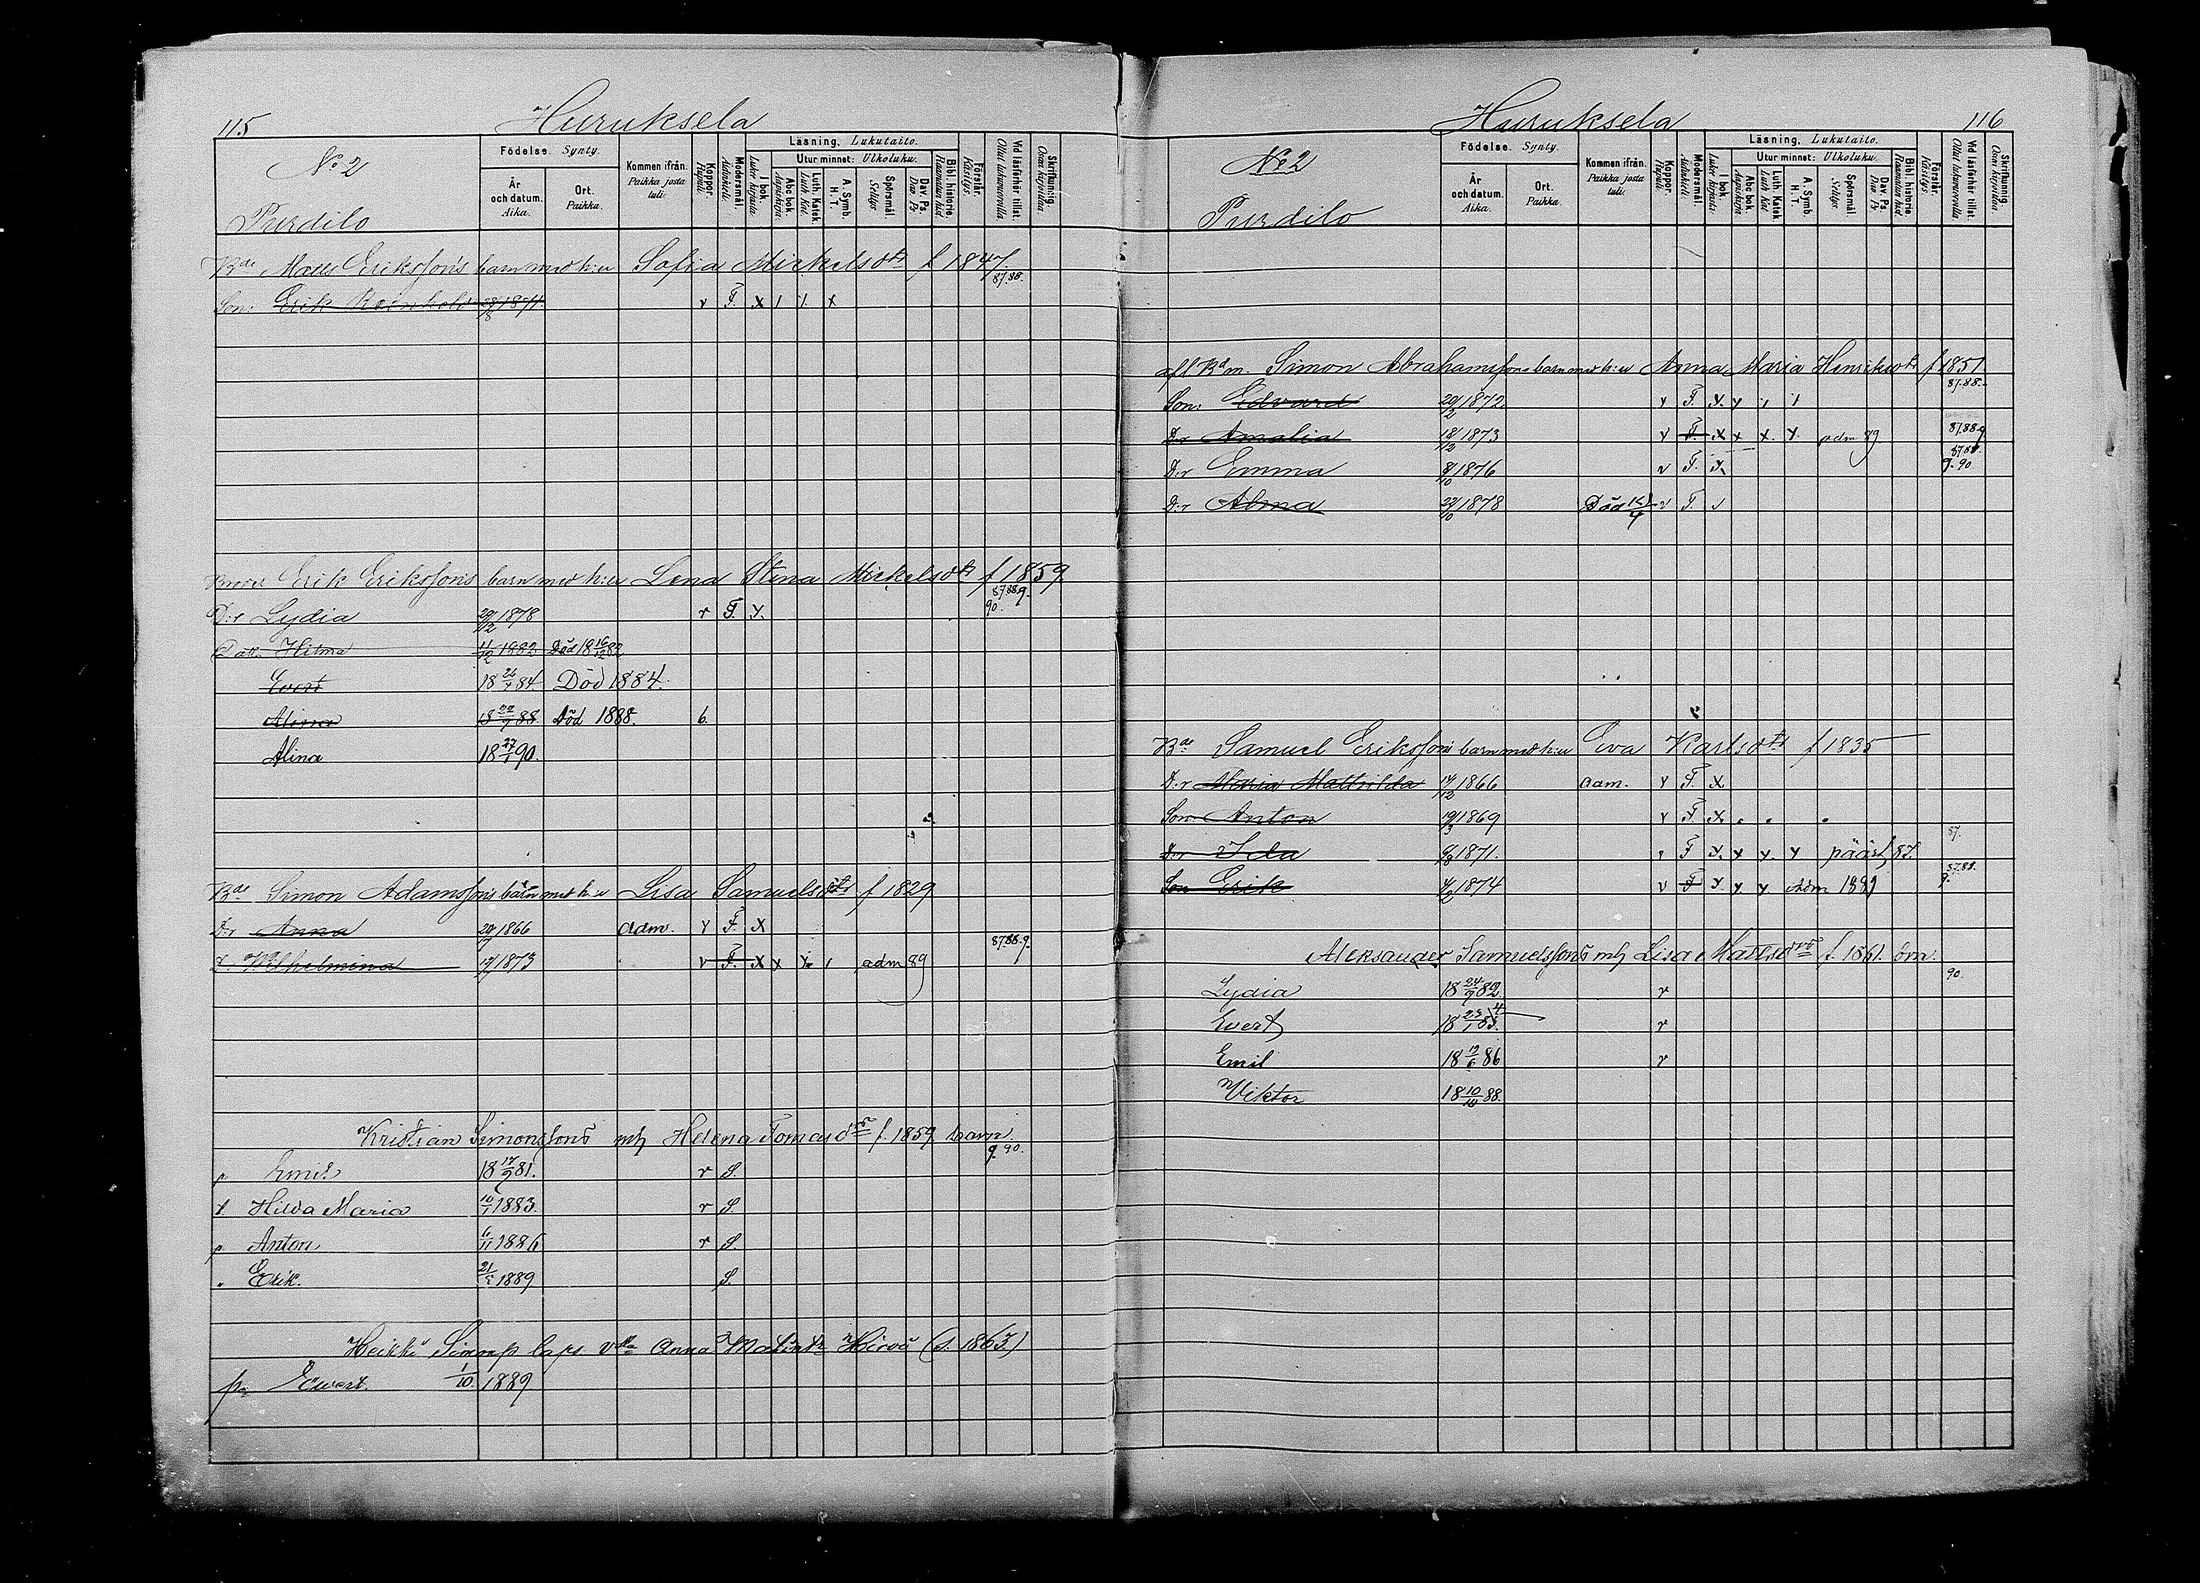 115
Huruksela
No 2
Purdilo
Födelse. Synty.
År och datum. Aika.
Ort. Paikka.
Kommen ifrån. Paikka josta tuli.
Koppor. Rupuli.
Modersmål. Äidinkieli.
Läsning. Lukutaito.
I bok. Lukee kirjasta
Utur minnet: Ulkoluku.
Abc bok. Aapiskirja
Luth. Katek. Luth. Kat.
A. Symb. H. T.
Spörsmål. Selitys
Dav. Ps. Dav. Ps
Bibl. historie. Raamatun hist
Förstår. Käsitys.
Vid läsförhör tillst. Ollut lukuvuorolla
Skrifkunnig. Osaa kirjoittaa
Bde Matts Eriksson's barn med h:u Sofia Mickelsdtr f 1847
87.88.
Son: Erik Reinhold 28/8 1871 v F. x / / x
Erik Erikssons barn med h:u Lena Stina Mickelsdtr f 1859
87.88.9.
90.
D:r Lydia 29/12 1878 r F. x.
Hilma 4/12 1882 Död 18 16/12 82
Evert 18 26/7 84. Död 1884.
Alina 18 22/9 88. Död 1888. b.
Alina 18 27/1 90.
Bde Simon Adamssons barn med h:u Lisa Samuelsdtr f 1829
D:r Anna 29/7 1866 adm. v F. x
87.88.9.
D. Wilhelmina 1873 v F. x x x / adm 89
Kristian Simonssons mh Helena Tomasdtr f. 1859 barn
9. 90.
p Emil 18 17/9 81. r S.
t. Hilda Maria 10/1 1883. r S.
p Anton 6/11 1886 r S.
" Erik. 21/1 1889 S.
Heikki Simonp laps. vmo Anna Matint:r Hirvi (s. 1863)
po Edvert. 1/10. 1889
Huruksela
116
No 2
Purdilo
Födelse. Synty.
År och datum. Aika.
Ort. Paikka.
Kommen ifrån. Paikka josta tuli.
Koppor. Rupuli.
Modersmål. Äidinkieli.
Läsning. Lukutaito.
I bok. Lukee kirjasta
Utur minnet: Ulkoluku.
Abc bok. Aapiskirja
Luth. Katek. Luth. Kat
A. Symb. H. T.
Spörsmål. Selitys
Dav. Ps. Dav. Ps
Bibl. historie. Raamatun hist
Förstår. Käsitys.
Vid läsförhör tillst. Ollut lukuvuorolla
Skrifkunnig. Osaa kirjoittaa
afl Bdm. Simon Abrahamssons barn med h:u Anna Maria Henriksdtr f 1851
87.88.
Son: Edvard 20/2 1872. v F. x. x / /
D:r Amalia 18/12 1873 v F. x x x. x. adm 89 87.88.9
D:r Emma 8/10 1876 v F. x. 87.88. 9. 90.
D:r Alma 22/10 1878 Död v F. /
Bde Samuel Erikssons barn med h:u Eva Karlsdtr f 1835
D:r Maria Mathilda 14/12 1866 adm. v F. x
Son: Anton 19/3 1869 v F. x.
87.
D:r Ida 1871. F x. x x. x pääst 87.
87.88.
9.
Son Erik 4/2 1874 v F x. x x Adm 1889
Aleksander Samuelssons mh Lisa Mattsdtr f. 1861. brn.
90.
Lydia 18 24/9 82. r
Evert 18 23/1 84. r
Emil 18 12/6 86 r
Viktor 18 10/10 88.